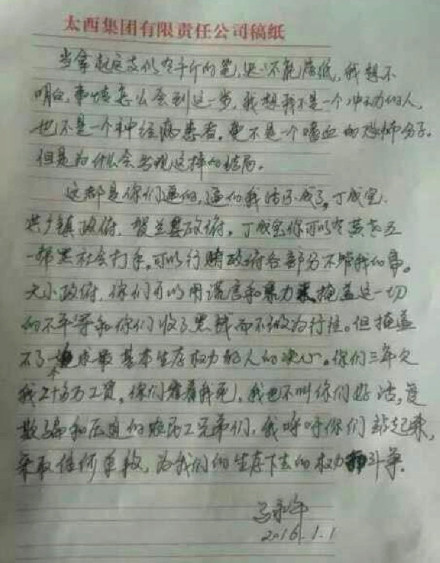 太西集团有限责任公司稿纸
当拿起这支似有千斤的笔，迟迟不能落纸，我想不
明白，事情怎么会到这一步，我想我不是一个冲动的人，
也不是一个神经病患者，更不是一个嗜血的恐怖分子。
但是为什么会出现这样的结局。
这都是你们逼的，逼的我活不成了，丁成宝
进乡镇政府，贺兰县政府。丁成宝你可以凭着
一帮黑社会打手，可以行贿政府各部分不管我的事。
大小政府，你们可以用谎言和暴力来掩盖这一切
的不平等和你们收了黑钱而不做为行径。但掩盖
不了追求基本生存权力的人的决心。你们三年欠
我工资，你们看着我死，我也不叫你们好活，受
欺骗和压迫的农民工兄弟们，我呼吁你们站起来，
采取任何手段，为我们的生存下去的权力斗争。
马永平
2016.1.1